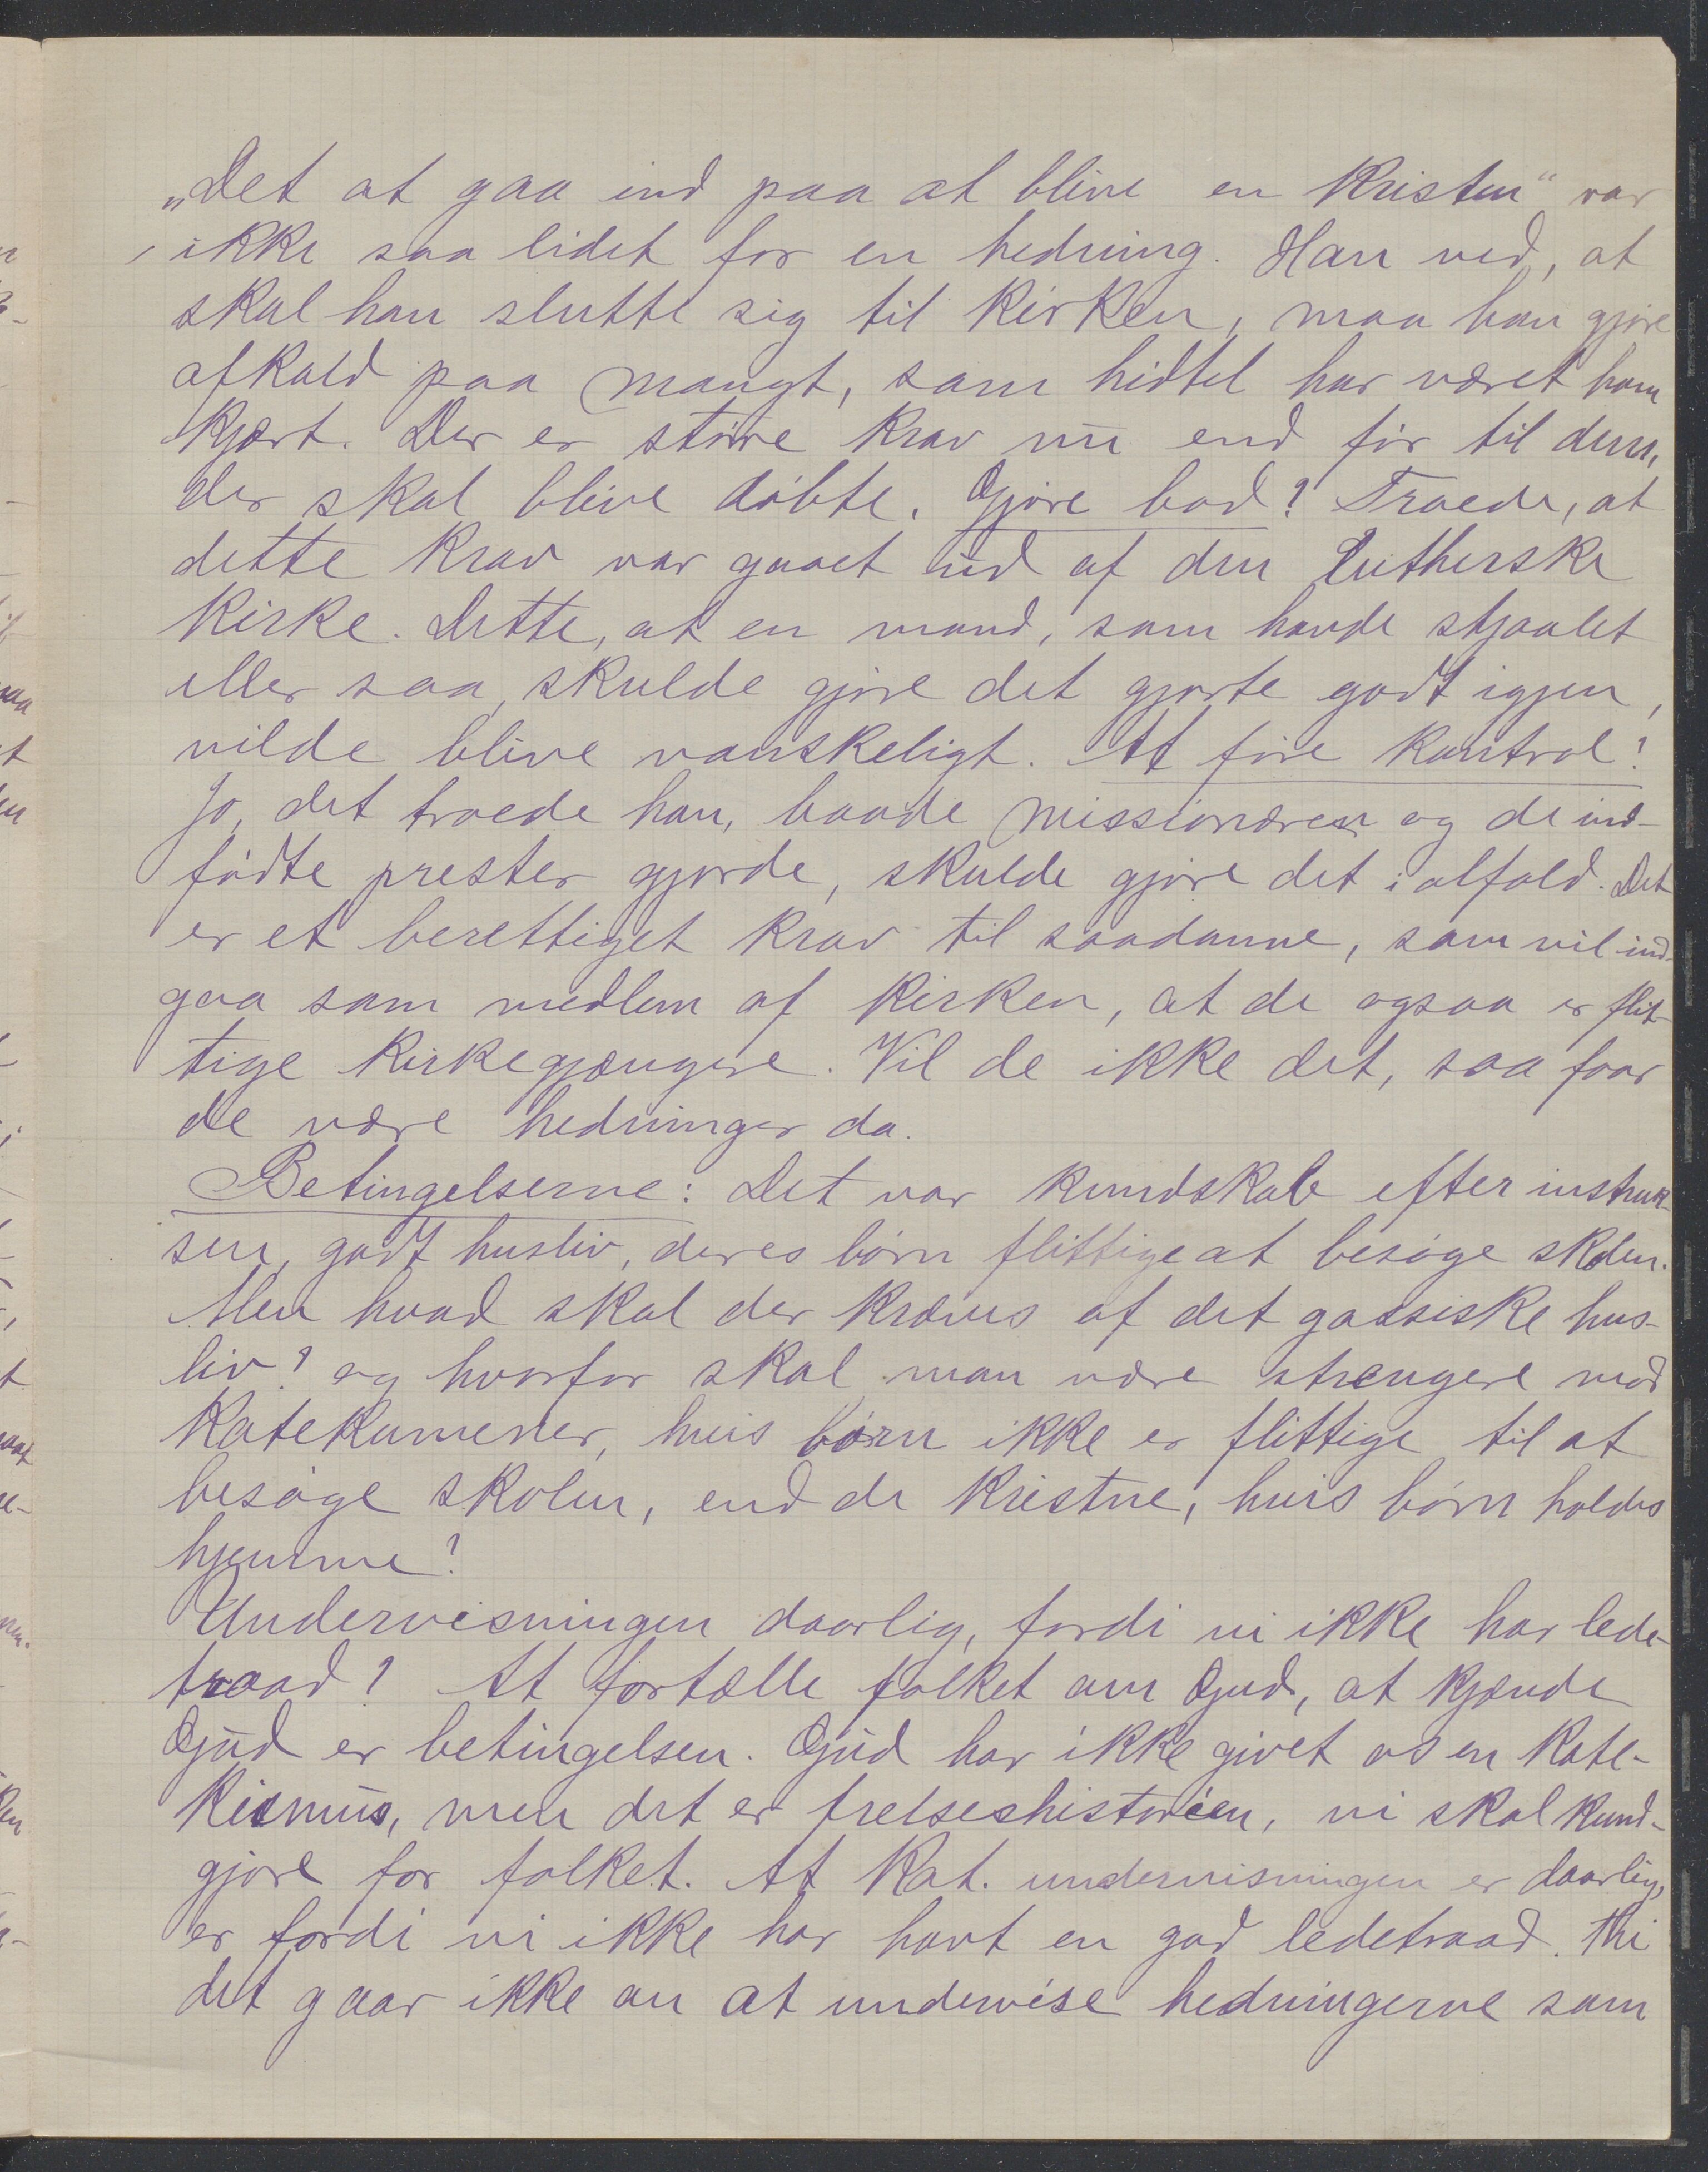 „Det at gaa ind paa at blive en Kristen" var
ikke saa lidet for en hedning. Han ved, at
skal han slutte sig til Kirken, maa han gjøre
afkald paa mangt, som hidtil har været ham
kjært. Der er større krav nu end før til dem,
der skal blive døbte. Gjøre bod? Troede, at
dette krav var gaaet ud af den Lutherske
Kirke. Dette, at en mand, som havde stjaalet
eller saa, skulde gjøre det gjorte godt igjen,
vilde blive vanskeligt. At føre kontrol?
Jo, det troede han, baade missionæren og de ind-
fødte prester gjorde, skulde gjøre det i alfald. Det
er et berettiget krav til saadanne, som vil ind-
gaa som medlem af Kirken, at de ogsaa er flit-
tige Kirkegjængere. Vil de ikke det, saa faar
de være hedninger da.
Betingelserne: Det var kundskab efter instruk-
sen, godt husliv, deres børn flittige at besøge skolen.
Men hvad skal der kræves af det gassiske hus-
liv? og hvorfor skal man være strengere mod
Katekumener, hvis børn ikke er flittige til at
besøge skolen, end de Kristne, hvis børn holdes
hjemme?
Undervisningen daarlig, fordi vi ikke har lede-
traad? At fortælle folket om Gud, at kjende
Gud er betingelsen. Gud har ikke givet os en Kate-
kismus, men det er frelseshistorien, vi skal kund-
gjøre for folket. At Kat. undervisningen er daarlig,
er fordi vi ikke har havt en god ledetraad. Thi
det gaar ikke an at undervise hedningerne som